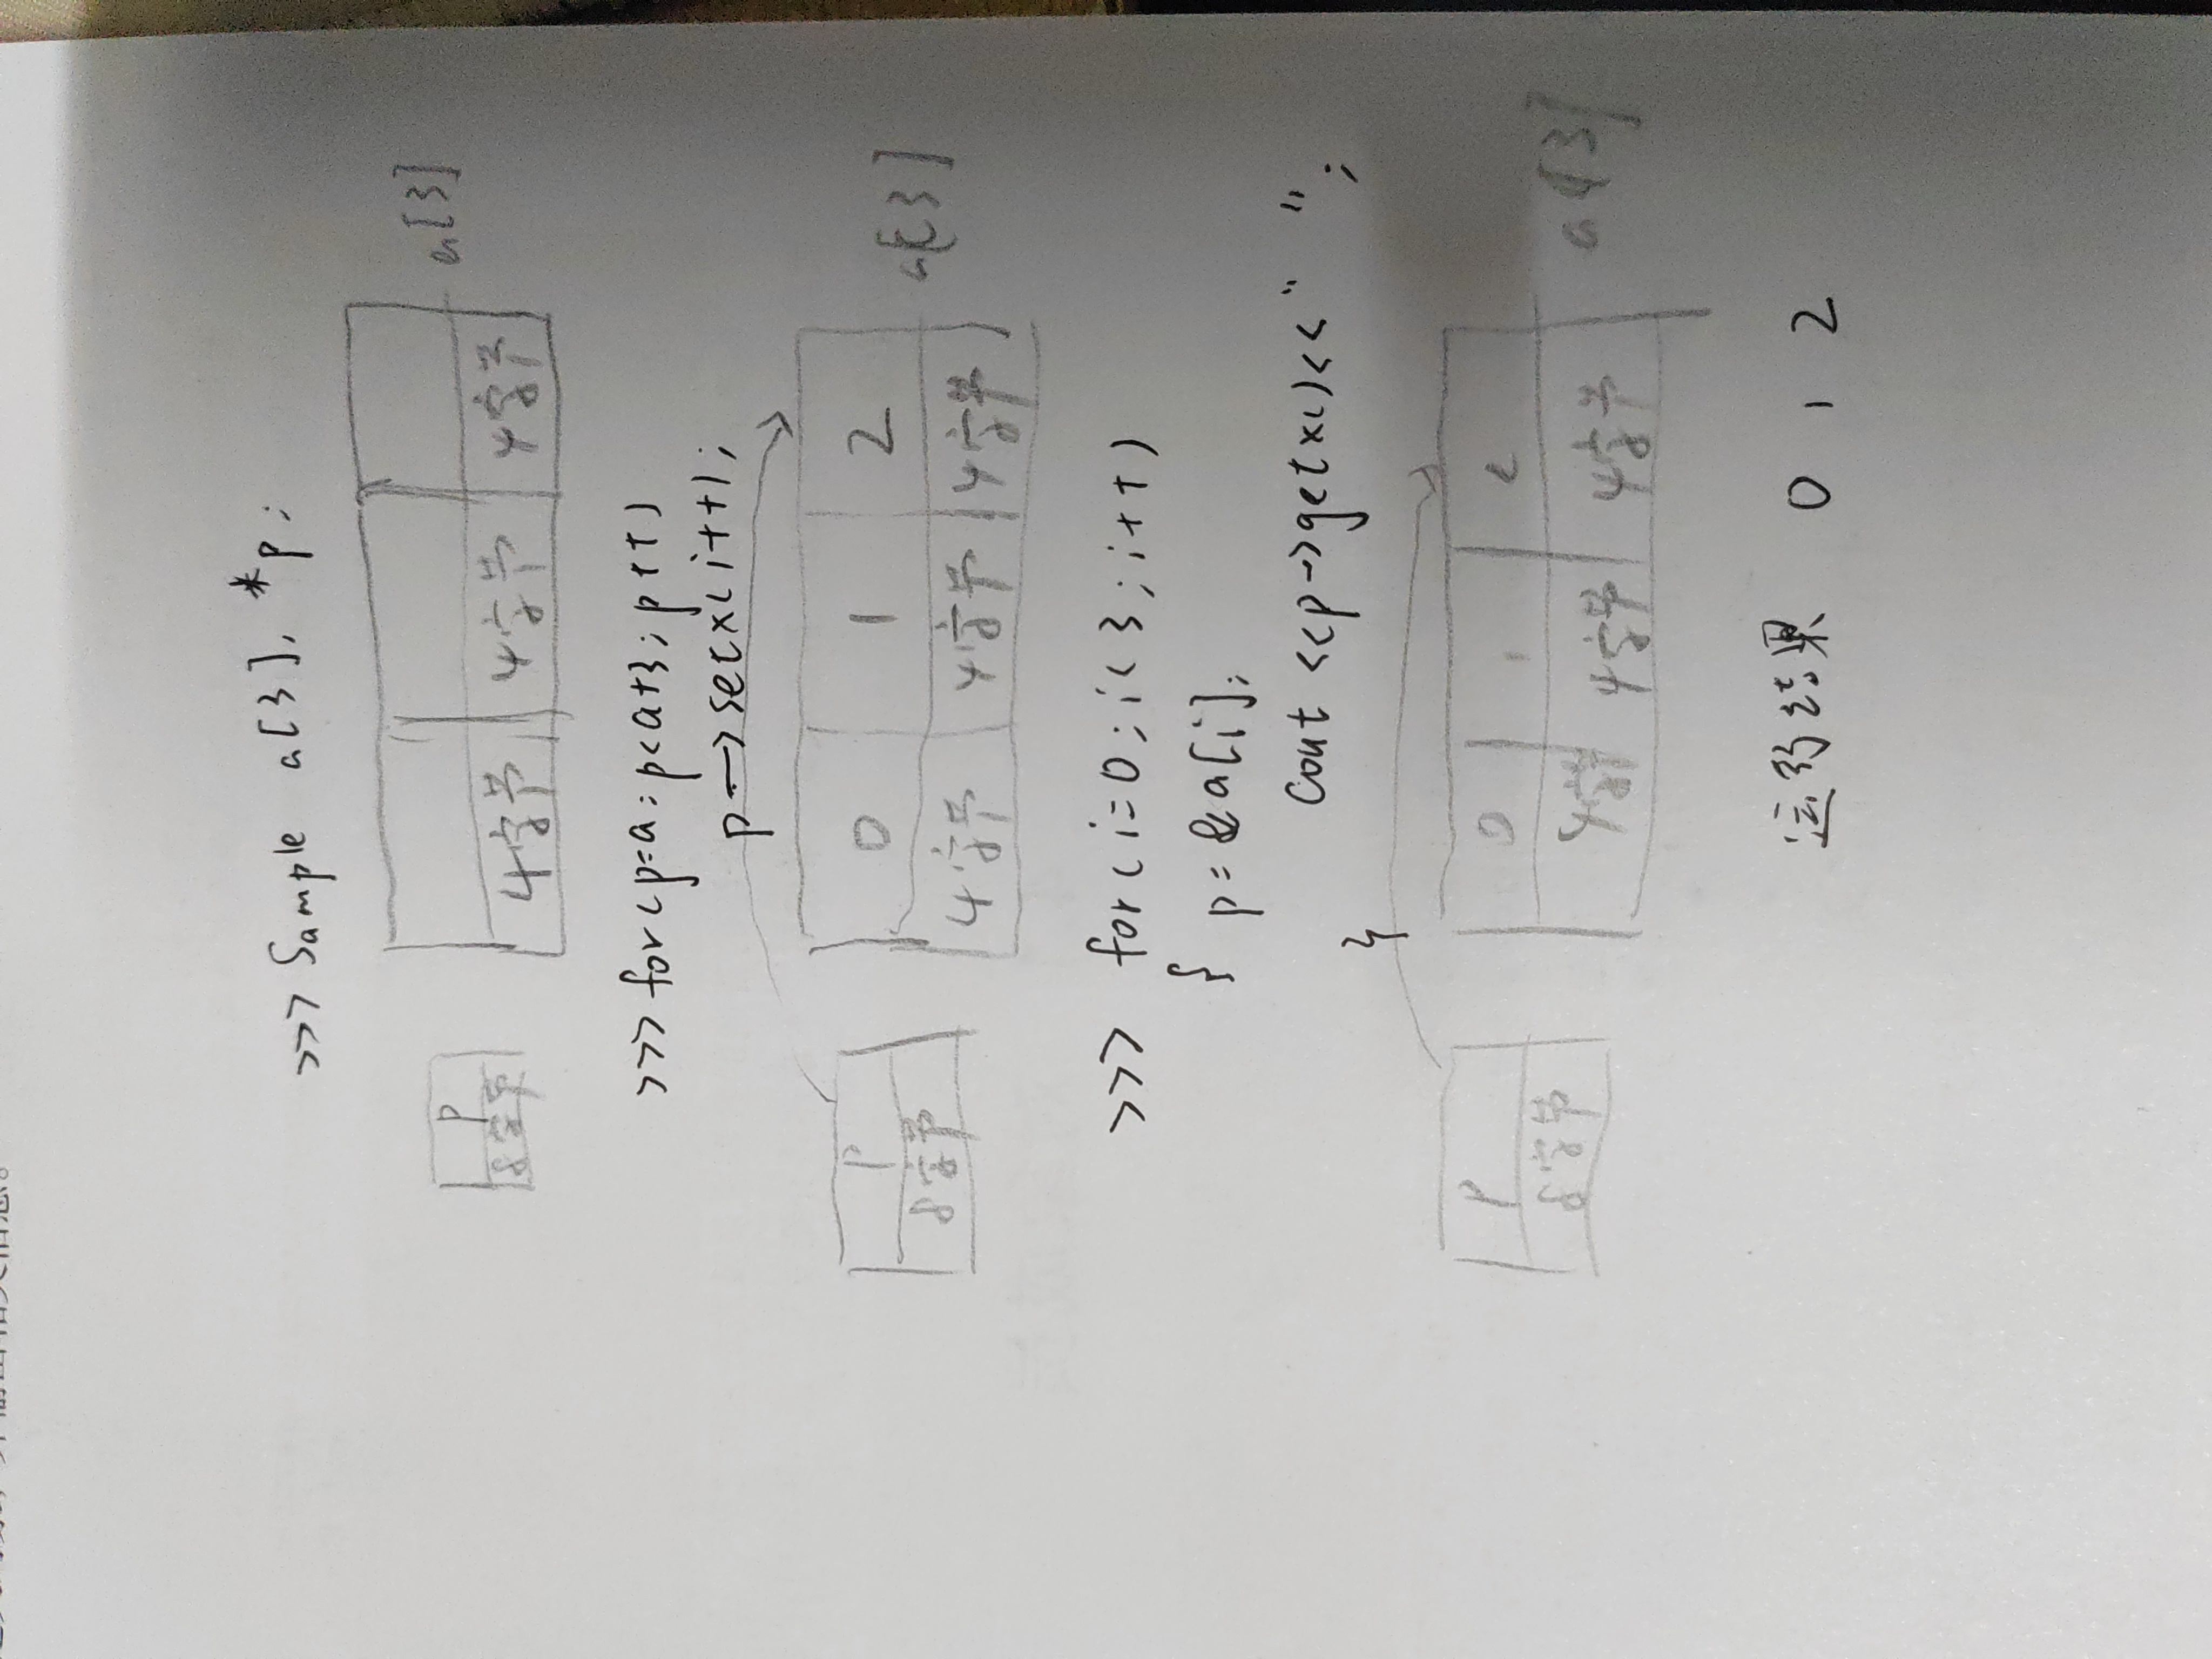 并输出相关信息。
>>> Sample a[3], *p;
p
8字节
4字节 4字节 4字节
a[3]
>>> for(p=a; p<a+3; p++)
p->setx(i++);
p
8字节
0 1 2
4字节 4字节 4字节
a[3]
>>> for(i=0; i<3; i++)
{ p=&a[i];
cout <<p->getx()<<" ";
}
p
8字节
0 1 2
4字节 4字节 4字节
a[3]
运行结果 0 1 2